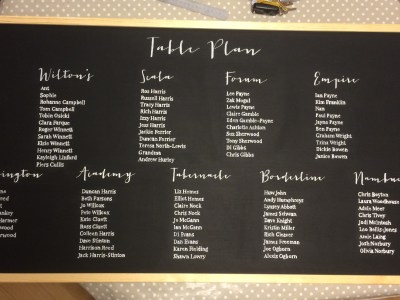 Table Plan
Wilton's
Ant
Sophie
Rohanne Campbell
Tom Campbell
Tobin Ouicki
Clara Farque
Roger Winnett
Sarah Winnett
Elsie Winnett
Henry Winnett
Kayleigh Linford
Piers Collis
Scala
Ros Harris
Russell Harris
Tracy Harris
Rich Harris
Izzy Harris
Joss Harris
Jackie Ferrier
Duncan Ferrier
Teresa North-Lewis
Grandma
Andrew Hurley
Forum
Lee Payne
Zak Mogul
Lewis Payne
Claire Gamble
Eden Gamble-Payne
Charlotte Ashton
Sux Sherwood
Tony Sherwood
Di Gibbs
Chris Gibbs
Empire
Ian Payne
Kim Franklin
Nan
Paul Payne
Jayne Payne
Ben Payne
Graham Wright
Trina Wright
Dickie Bowen
Janice Bowen
Academy
Duncan Harris
Beth Parsons
Jo Willcox
Pete Willcox
Kate Clavell
Ross Clavell
Colleen Harris
Dave Stinton
Harrison Reed
Jack Harris-Stinton
Tabernacle
Liz Homes
Elliot Homes
Claire Nock
Chris Nock
Jo McGann
Ian McGann
Di Evans
Dan Evans
Karen Fielding
Shawn Lowry
Borderline
Huw John
Andy Humphreys
Lynsey Abbott
James Selwan
Dave Knight
Kristin Miller
Ruth Casper
James Freeman
Joe Ogborn
Alexis Ogborn
Chris Boyton
Laura Woodhouse
Adele Meer
Chris Tivey
Jodi McIntosh
Lee Bolt-Jones
Annie Laing
Josh Norbury
Olivia Norbury